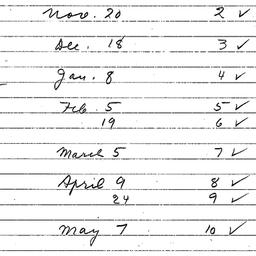 Nov. 20 2 ✓
Dec. 18 3 ✓
Jan. 8 4 ✓
Feb. 5 5 ✓
19 6 ✓
March 5 7 ✓
April 9 8 ✓
24 9 ✓
May 7 10 ✓